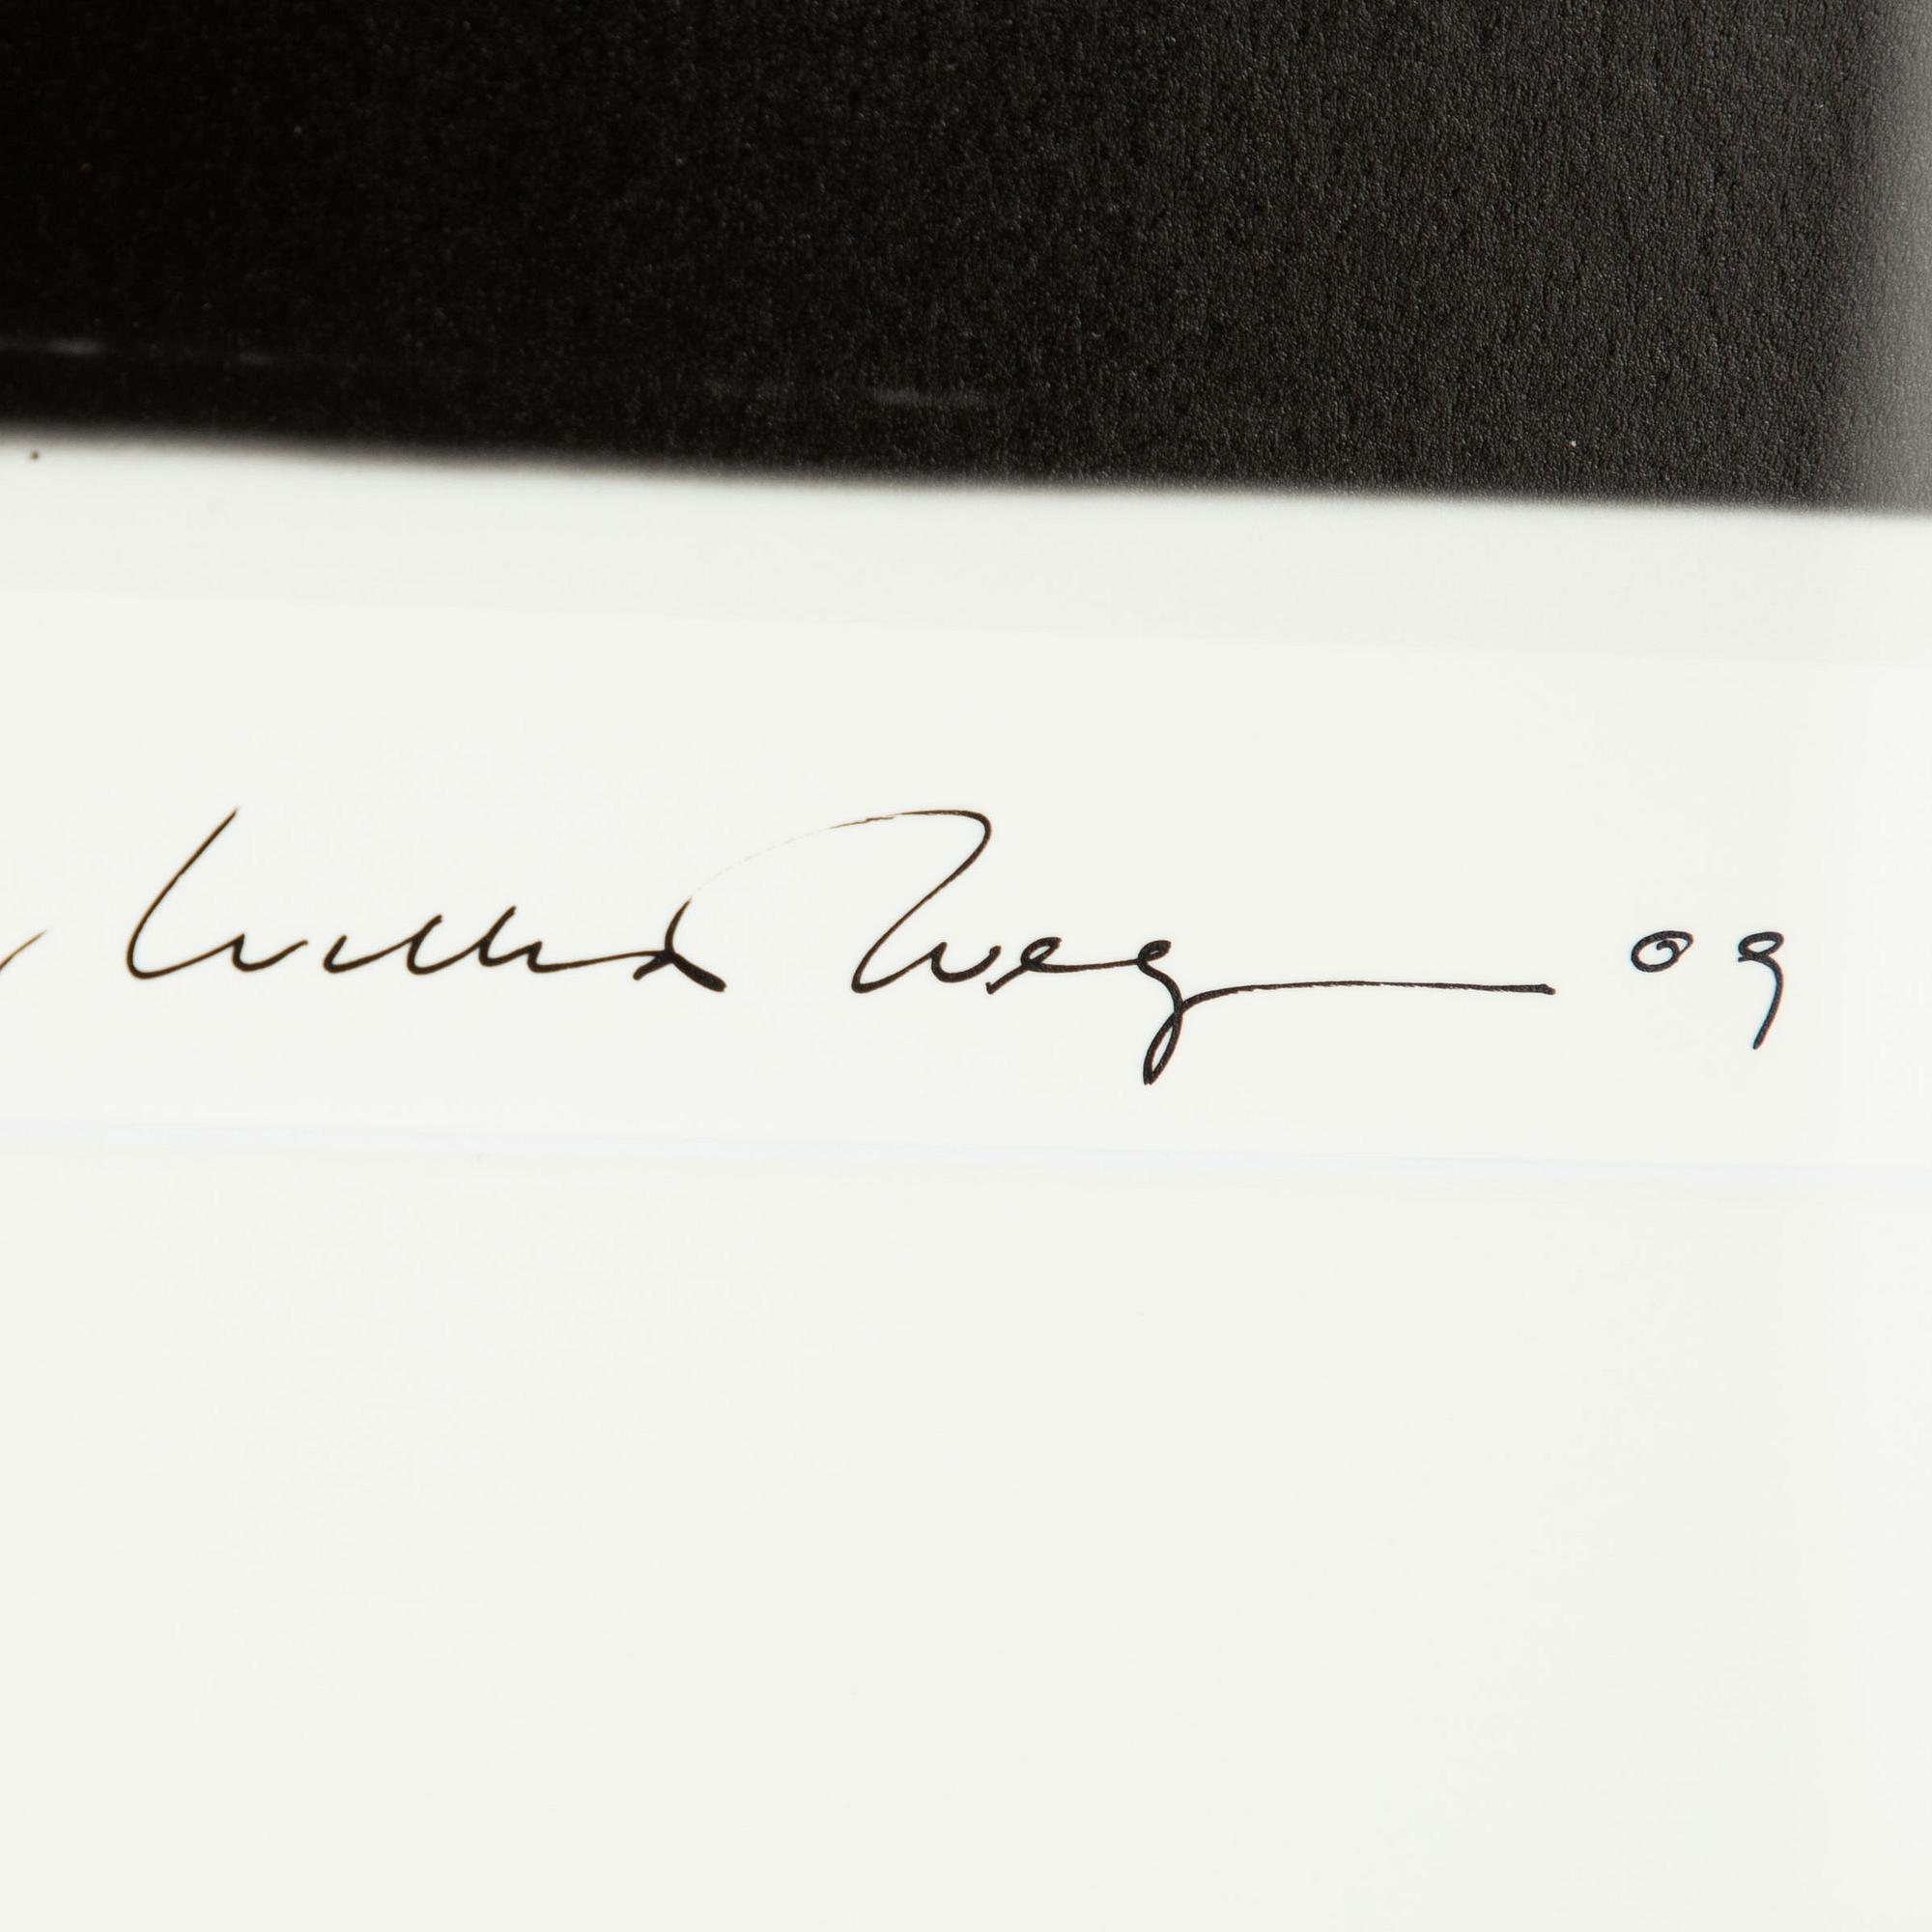 William Wegman 09